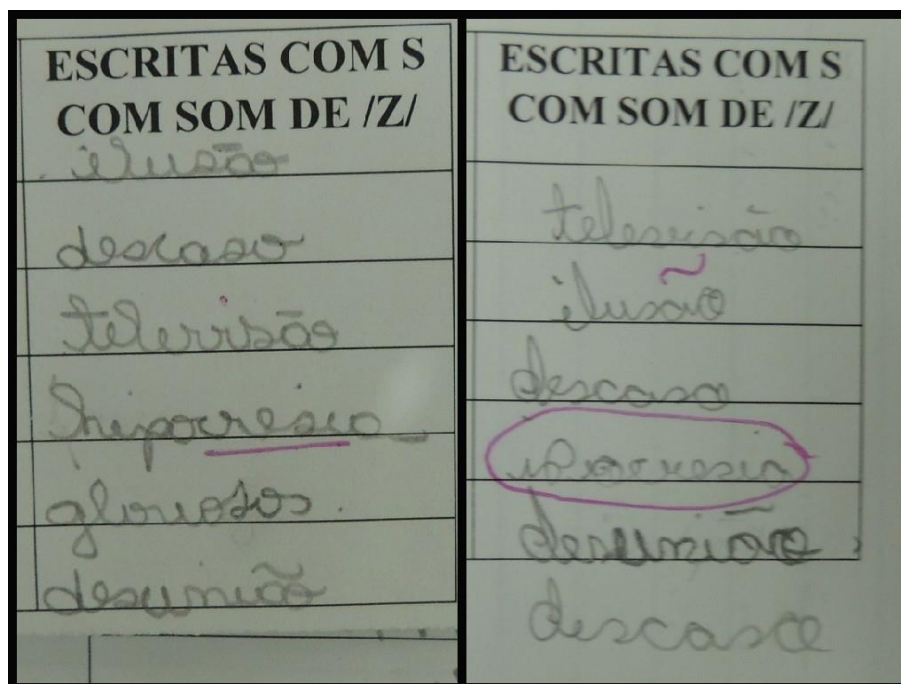 ESCRITAS COM S
COM SOM DE /Z/
ilusão
descaso
televisão
hipocresia
gloriosos.
desunião
ESCRITAS COM S
COM SOM DE /Z/
televisão
ilusão
descaso
ipocresia
desunião
descaso